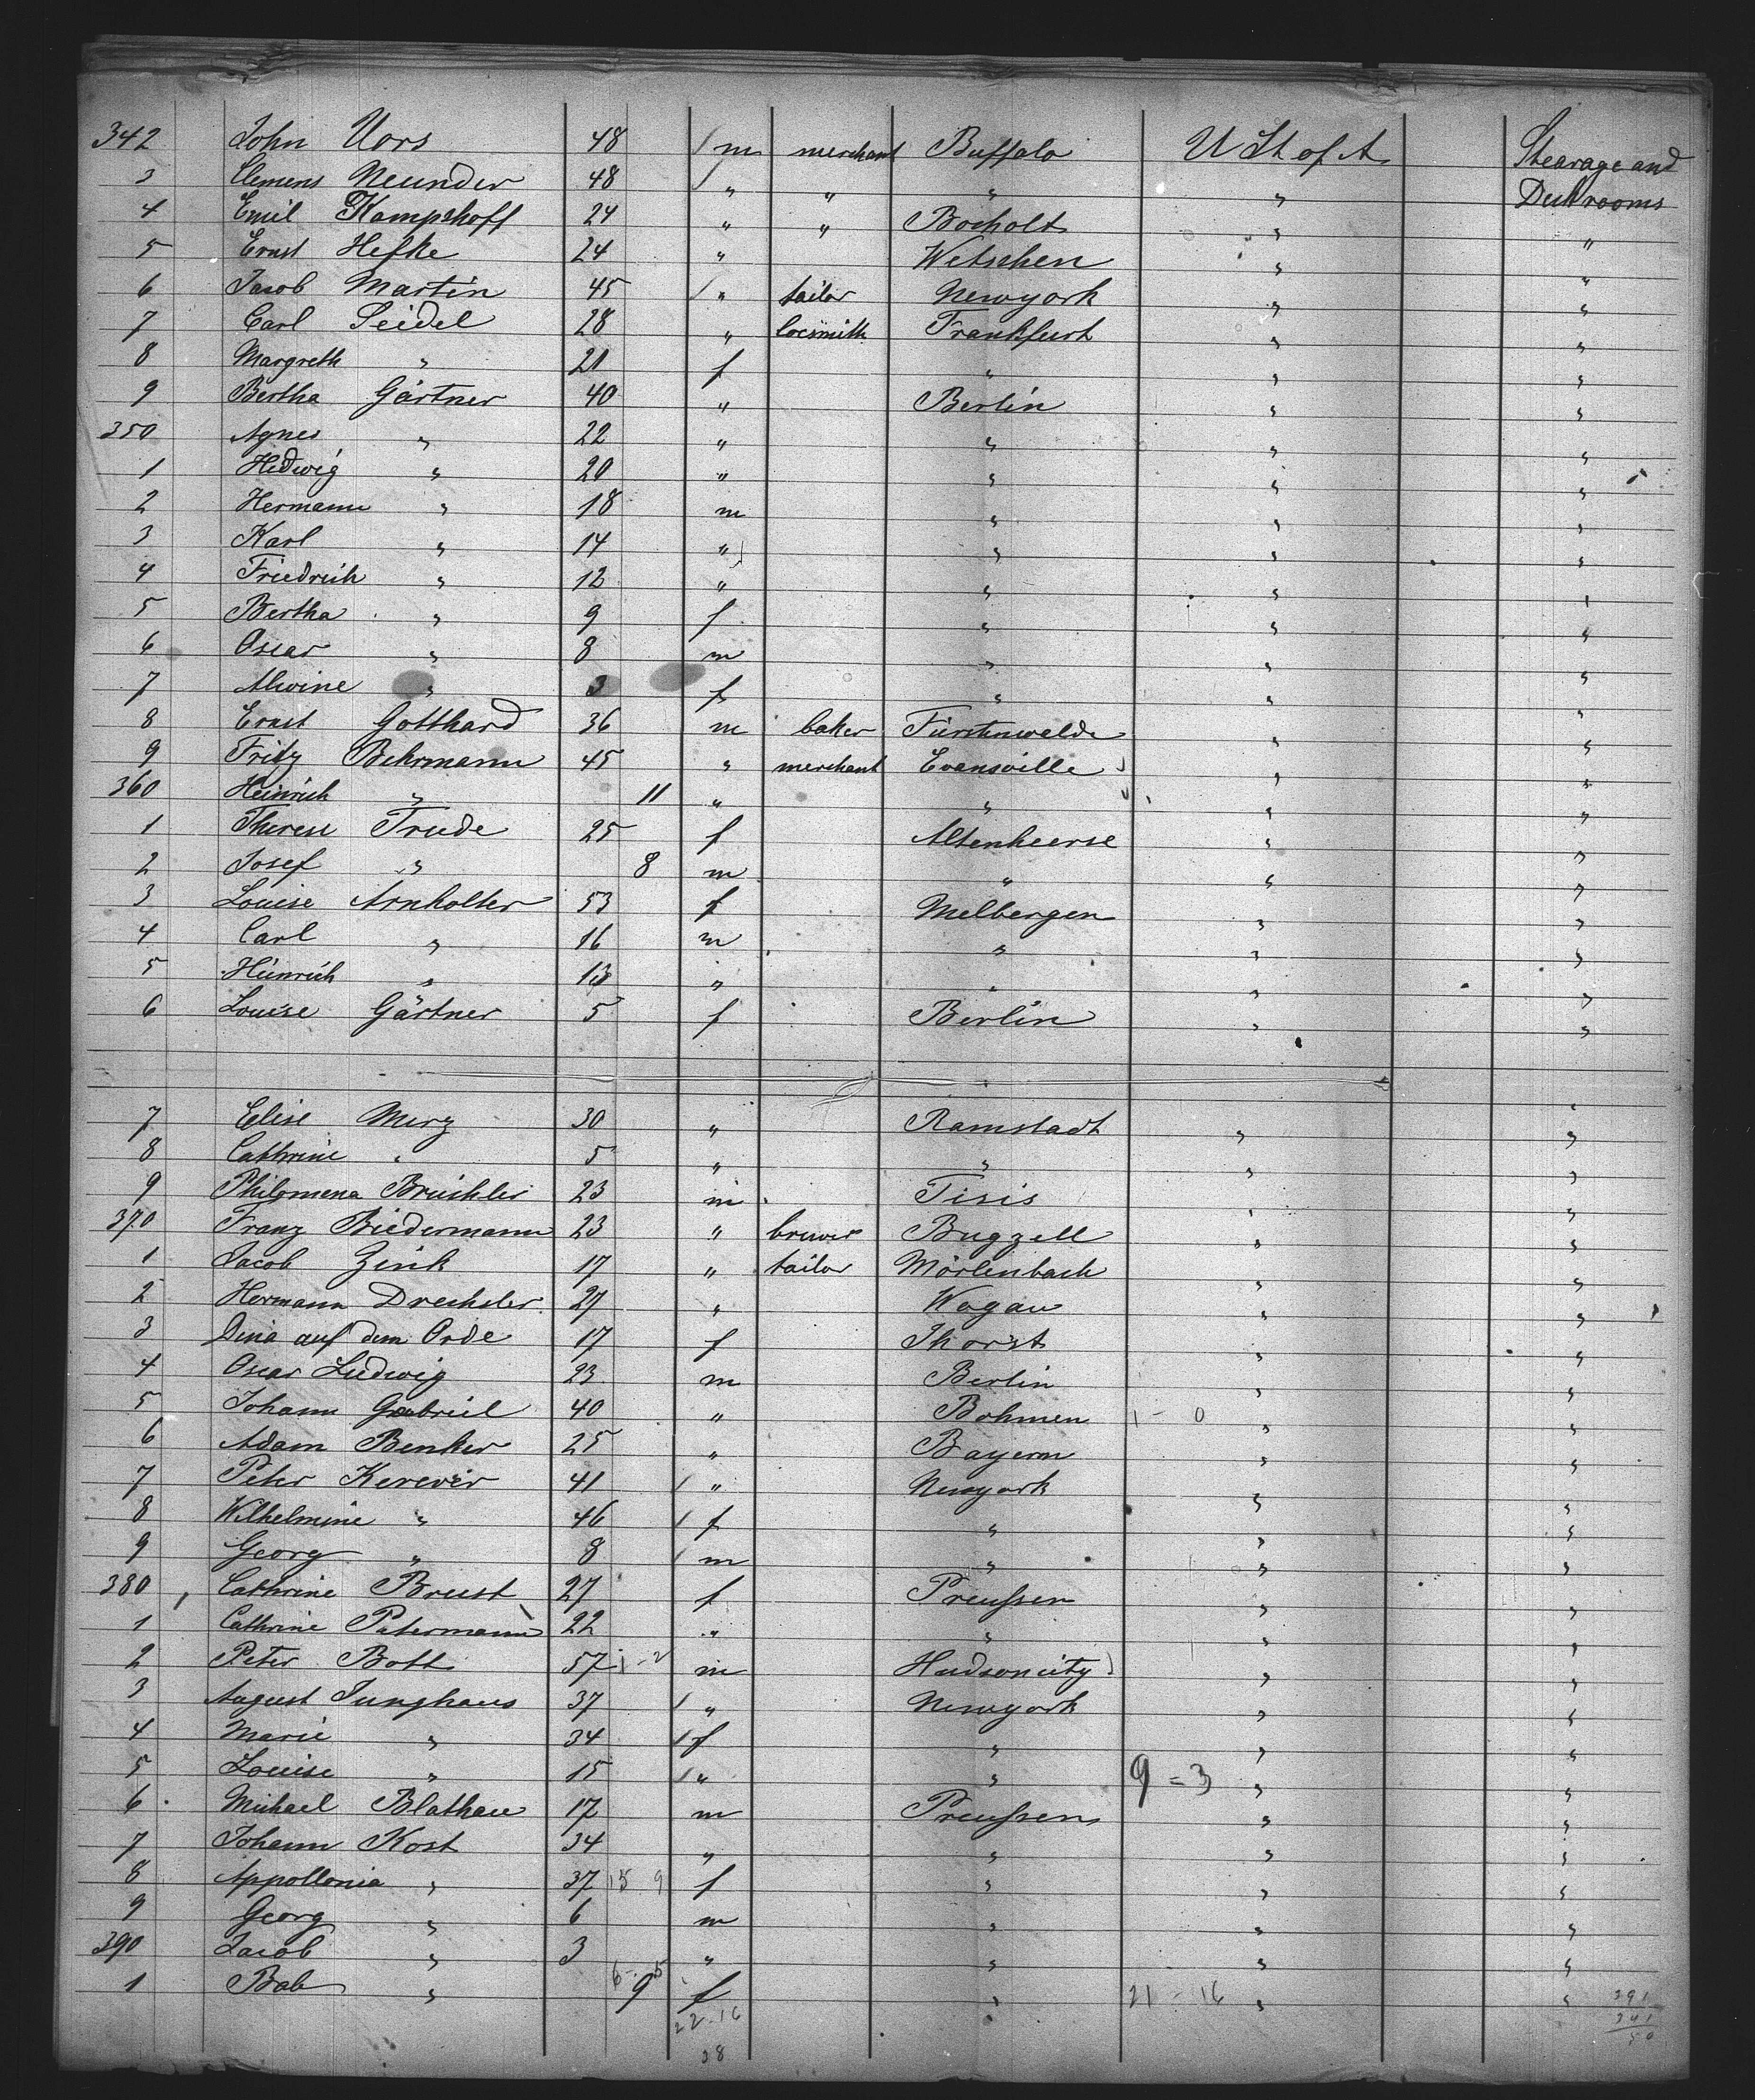 342 John Vors 48 / m merchant Buffalo U St of A Stearage and
3 Clemens Neunder 48 / " " " " Deckrooms
4 Emil Kampshoff 24 " " Bocholt " "
5 Ernst Hefke 24 " Wetschen " "
6 Jacob Martin 45 / " tailor Newyork " "
7 Carl Seidel 28 " locsmith Frankfurt " "
8 Margreth " 21 f " " "
9 Bertha Gärtner 40 " Berlin " "
350 Agnes " 22 " " " "
1 Hedwig " 20 " " " "
2 Hermann " 18 m " " "
3 Karl " 14 " " " "
4 Friedrich " 12 " " " "
5 Bertha " 9 f " " "
6 Oscar " 8 m " " "
7 Alwine " 3 f " " "
8 Ernst Gotthard 36 m baker Fürstenwalde " "
9 Fritz Behrmann 45 " merchant Evansville " "
360 Heinrich " 11 " " " "
1 Therese Trude 25 f Altenheerse " "
2 Josef " 8 m " " "
3 Louise Arnholter 53 f Melbergen " "
4 Carl " 16 m " " "
5 Heinrich " 13 " " " "
6 Louise Gärtner 5 f Berlin " "
7 Elise Merz 30 " Ramstadt " "
8 Cathrine " 5 " " " "
9 Philomena 23 m Tisis " "
370 Franz Biedermann 23 " brewer Buggell " "
1 Jacob Zink 17 " tailor Mörlenbach " "
2 Hermann Drechsler 27 " Wogau " "
3 Dina auf dem Orde 17 f Thorst " "
4 Oscar Ludwig 23 m Berlin " "
5 Johann Gabriel 40 " Bohmen 1 - 0 " "
6 Adam Benker 25 " Bayern " "
7 Peter 41 / " Newyork " "
8 Wilhelmine " 46 / f " " "
9 Georg " 8 / m " " "
380 Cathrine Brust 27 f Preußen " "
1 Cathrine Petermann 22 " " " "
2 Peter Bott 57 1-2 m Hudsoncity " "
3 August Junghans 37 / " Newyork " "
4 Marie " 34 / f " " "
5 Louise " 15 / " " 9 = 3 " "
6 Michael Blathau 17 m Preußen " "
7 Johann Kost 34 " " " "
8 Appollonia " 37 15 9 f " " "
9 Georg " 6 m " " "
390 Jacob " 3 " " " "
1 Bab " 6-5 9 f " 21 - 16 " " 391
22-16 341
28 50